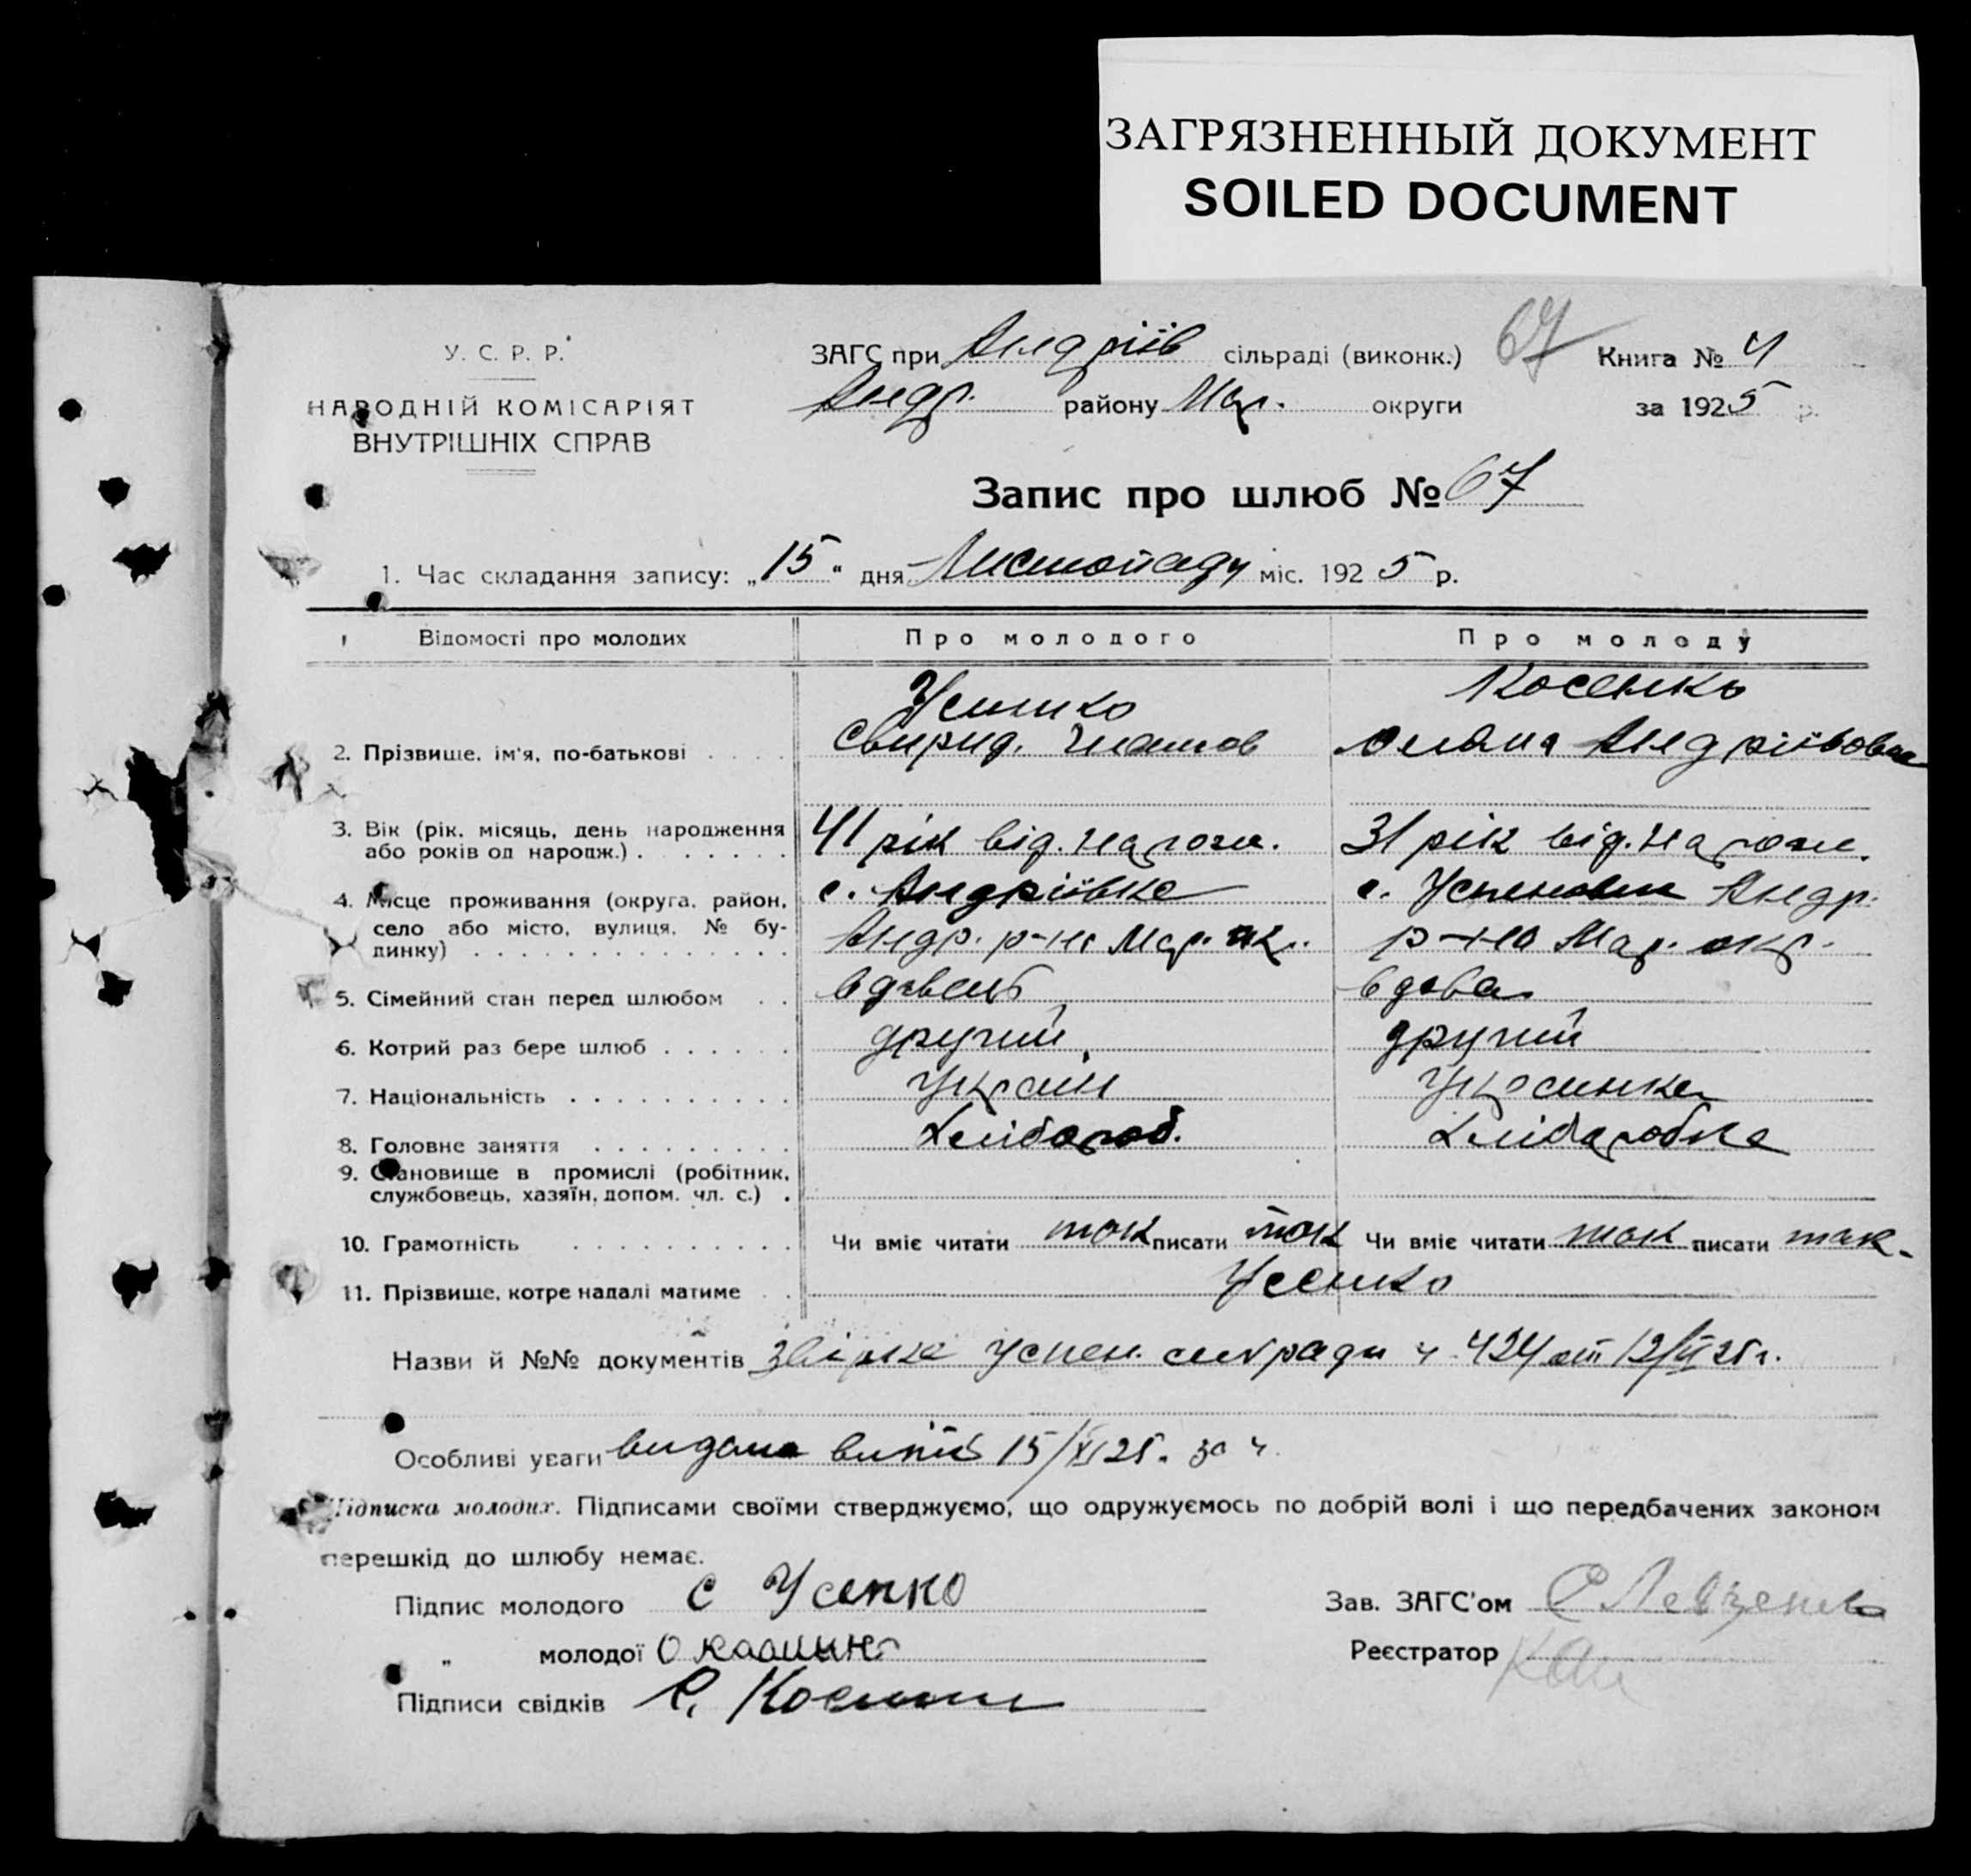 ЗАГРЯЗНЕННЫЙ ДОКУМЕНТ
SOILED DOCUMENT
У. С. Р. Р.
НАРОДНІЙ КОМІСАРІЯТ
ВНУТРІШНІХ СПРАВ
ЗАГС при Андріїв сільраді (виконк.) 67 Книга № 4
Андр. району Мар. округи за 1925 р.
Запис про шлюб № 67
1. Час складання запису: „15“ дня Листопаду міс. 1925 р.
Відомості про молодих Про молодого Про молоду
Усенко Косенко
2. Прізвище, ім'я, по-батькові Свирид. Андріївовна
3. Вік (рік, місяць, день народження або років од народж.) 41 рік від. народж. 31 рік від. народж.
4. Місце проживання (округа, район, с. Андріївка с. Успеновки Андр.
село або місто, вулиця, № бу- Андр. р-на Мар. окр. р-на Мар. окр.
динку)
5. Сімейний стан перед шлюбом вдовець вдова
6. Котрий раз бере шлюб другий другий
7. Національність Україн Украинка
8. Головне заняття Хлібороб. Хліборобка
9. Становище в промислі (робітник,
службовець, хазяїн, допом. чл. с.)
10. Грамотність Чи вміє читати так писати так Чи вміє читати так писати так
11. Прізвище, котре надалі матиме Усенко
Назви й №№ документів Успен. сільради ч 424 от 12/XI 25 г.
Особливі уваги видана 15/XI 25. за ч.
Підписка молодих. Підписами своїми стверджуємо, що одружуємось по добрій волі і що передбачених законом
перешкід до шлюбу немає.
Підпис молодого С Усенко Зав. ЗАГС'ом
„ молодої О Реєстратор
Підписи свідків